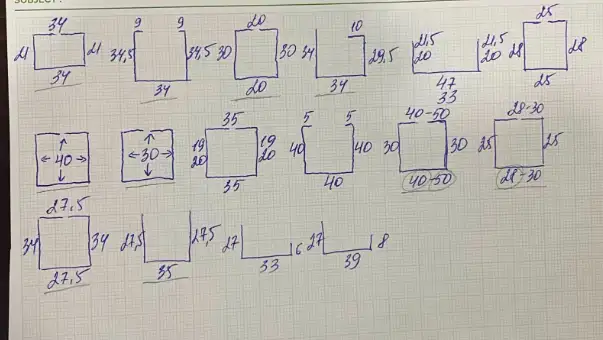 SUBJECT:
34 9 9 20 10 21,5 21,5 25
21 21 34,5 34,5 30 30 34 29,5 20 20 28 28
34 34 20 34 47 25
33
35 5 5 40-50 28-30
←40→ ←30→ 19 19 40 40 30 30 25 25
20 20
35 40 40-50 28-30
27,5
34 34 27,5 27,5 27 6 27 8
27,5 35 33 39